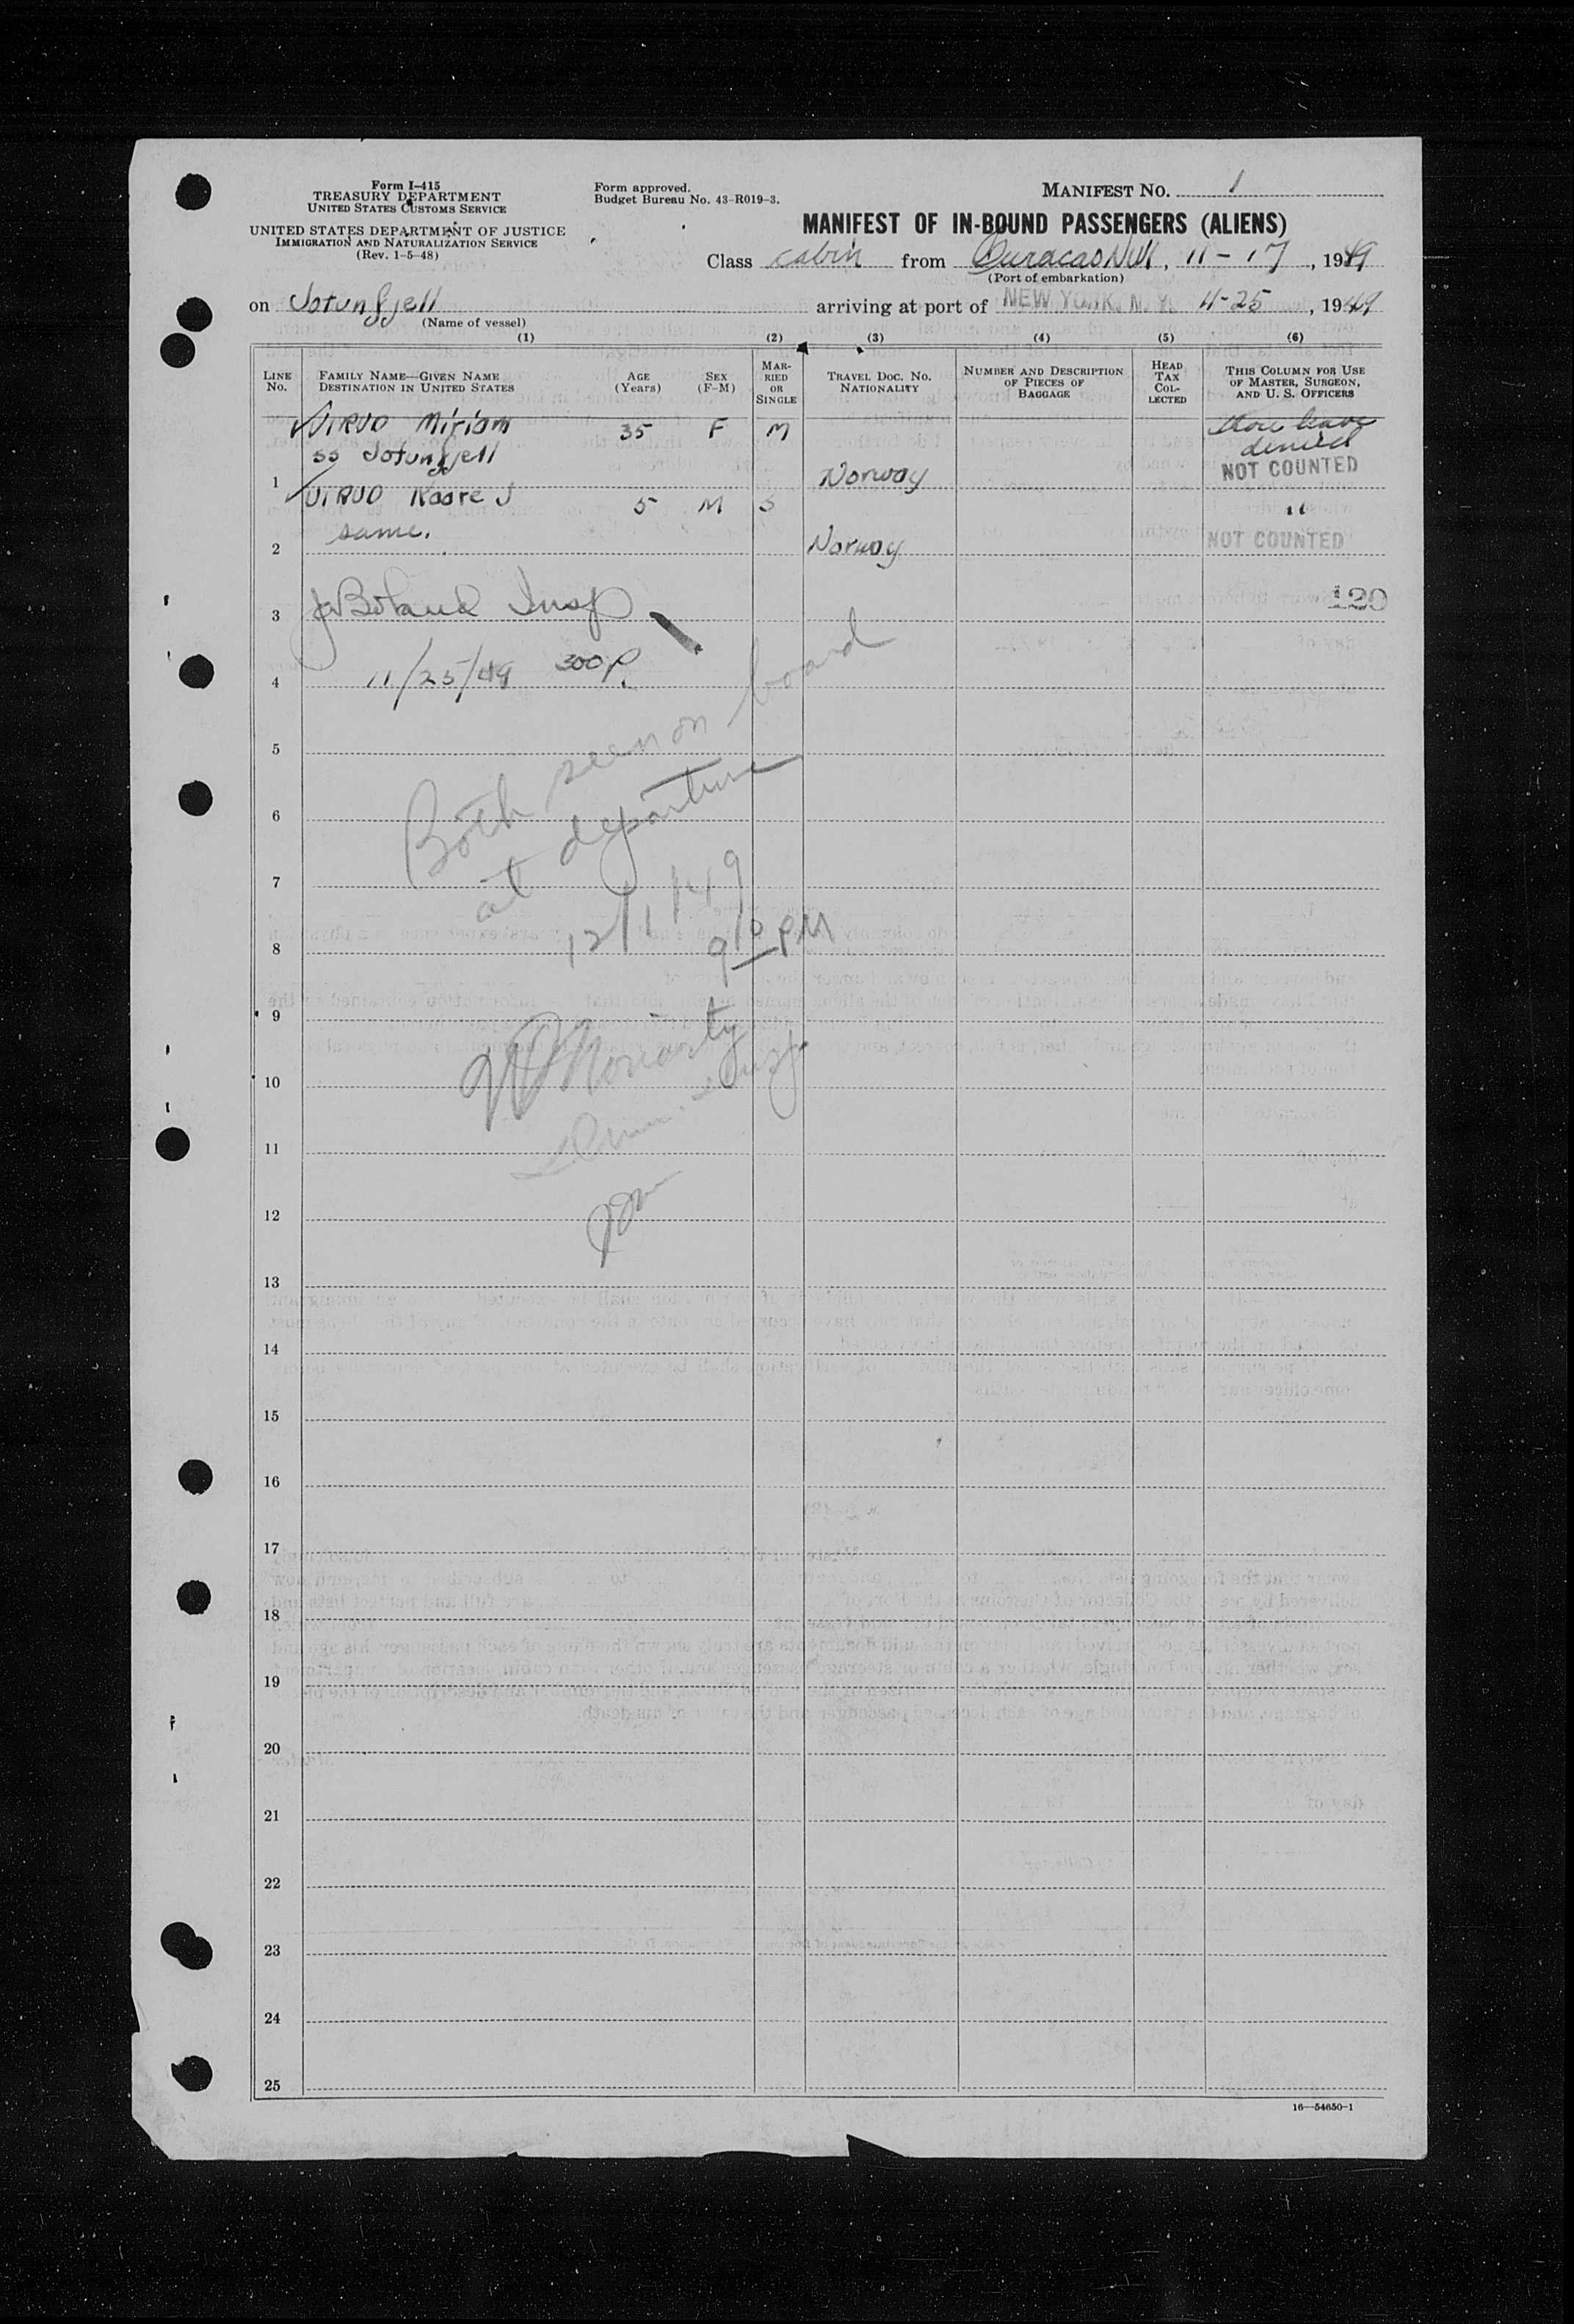 Form I-415
TREASURY DEPARTMENT
UNITED STATES CUSTOMS SERVICE
UNITED STATES DEPARTMENT OF JUSTICE
IMMIGRATION AND NATURALIZATION SERVICE
(Rev. 1-5-48)
Form approved.
Budget Bureau No. 43-R019-3.
MANIFEST NO. 1
MANIFEST OF IN-BOUND PASSENGERS (ALIENS)
Class cabin from Curacao NWI, 11-17, 1949
(Port of embarkation)
on Jotunfjell arriving at port of NEW YORK, N. Y. 11-25, 1949
(Name of vessel)
(1) (2) (3) (4) (5) (6)
LINE No. FAMILY NAME—GIVEN NAME DESTINATION IN UNITED STATES AGE (Years) SEX (F-M) MARRIED OR SINGLE TRAVEL DOC. NO. NATIONALITY NUMBER AND DESCRIPTION OF PIECES OF BAGGAGE HEAD TAX COLLECTED THIS COLUMN FOR USE OF MASTER, SURGEON, AND U. S. OFFICERS
VIRUD Miriam 35 F M Shore leave denied
ss Jotunfjell
1 Norway NOT COUNTED
VIRUD Kaare J 5 M S "
same.
2 Norway NOT COUNTED
120
3 Boland Insp
4 11/25/49 300 P.
Both seen on board
5
at departure
6
7
12/1/49
8
9 10 PM
9
Moriarty
10
Insp.
11
12
13
14
15
16
17
18
19
20
21
22
23
24
25
16—54650-1